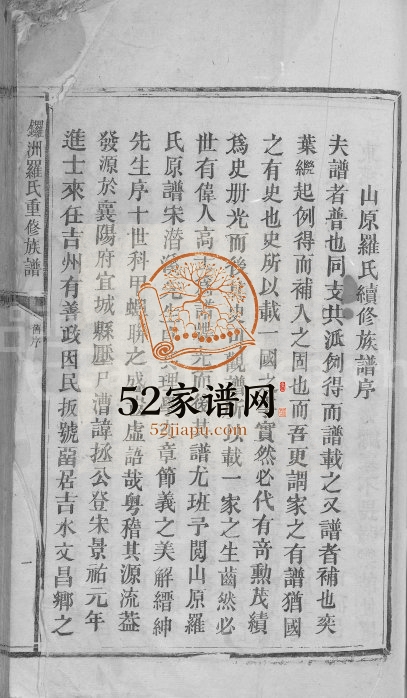 山原羅氏續修族譜序
夫譜者普也同支共派例得而譜載之又譜者補也奕
葉繼起例得而補入之固也而吾更謂家之有譜猶國
之有史也史所以載一國之事實然必代有奇勳茂績
為史册光而後其史可觀譜以載一家之生齒然必
世有偉人高士為譜光而後其譜尤班予閱山原羅
氏原譜宋潛溪先生章節義之美解縉紳
先生序十世科甲蟬聯之盛虛語哉粤稽其源流蓋
發源於襄陽府宜城縣厭尸漕諱拯公登宋景祐元年
進士來任吉州有善政因民扳號留居吉水文昌鄉之
鑼洲羅氏重修族譜
舊序
一
52家谱网
52jiapu.com